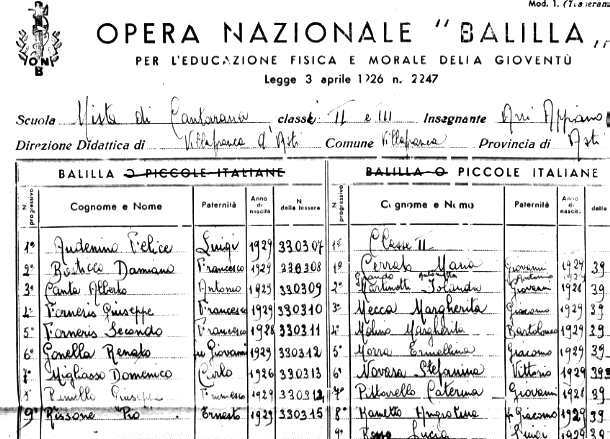 Mod. 1.
OPERA NAZIONALE "BALILLA„
PER L'EDUCAZIONE FISICA E MORALE DELLA GIOVENTÙ
Legge 3 aprile 1926 n. 2247
ONB
Scuola Mista di Cantarana classe II e III Insegnante Appiano
Direzione Didattica di Villafranca d'Asti Comune Villafranca Provincia di Asti
BALILLA O PICCOLE ITALIANE
N. progressivo Cognome e Nome Paternità Anno di nascita N. della tessera
1° Audenino Felice Luigi 1929 330307
2° Damiano Francesco 1929 330308
3° Canta Alberto Antonio 1929 330309
4° Forneris Giuseppe Francesco 1929 330310
5° Forneris Secondo Francesco 1928 330311
6° Gonella Renato fu Giovanni 1929 330312
7° Migliasso Domenico Carlo 1926 330313
Giuseppe Francesco 1929
9° Rissone Pio Ernesto 1929 330315
BALILLA O PICCOLE ITALIANE
N. progressivo Cognome e Nome Paternità Anno di nascita della
Classe II
1° Cerrato Maria Giovanni 1929 39
2° Martinotti Iolanda Giovanni 1928 39
3° Mecca Margherita Giacomo 1929 39
4° Molino Margherita Bartolomeo 1929 39
5° Morra Ermellina Giacomo 1929 39
6° Novara Stefanina Vittorio 1929 393
7° Pittarello Caterina Giovanni 1928 39
8° fu Giacomo 1929 39
9° Lucia Luigi 1929 39